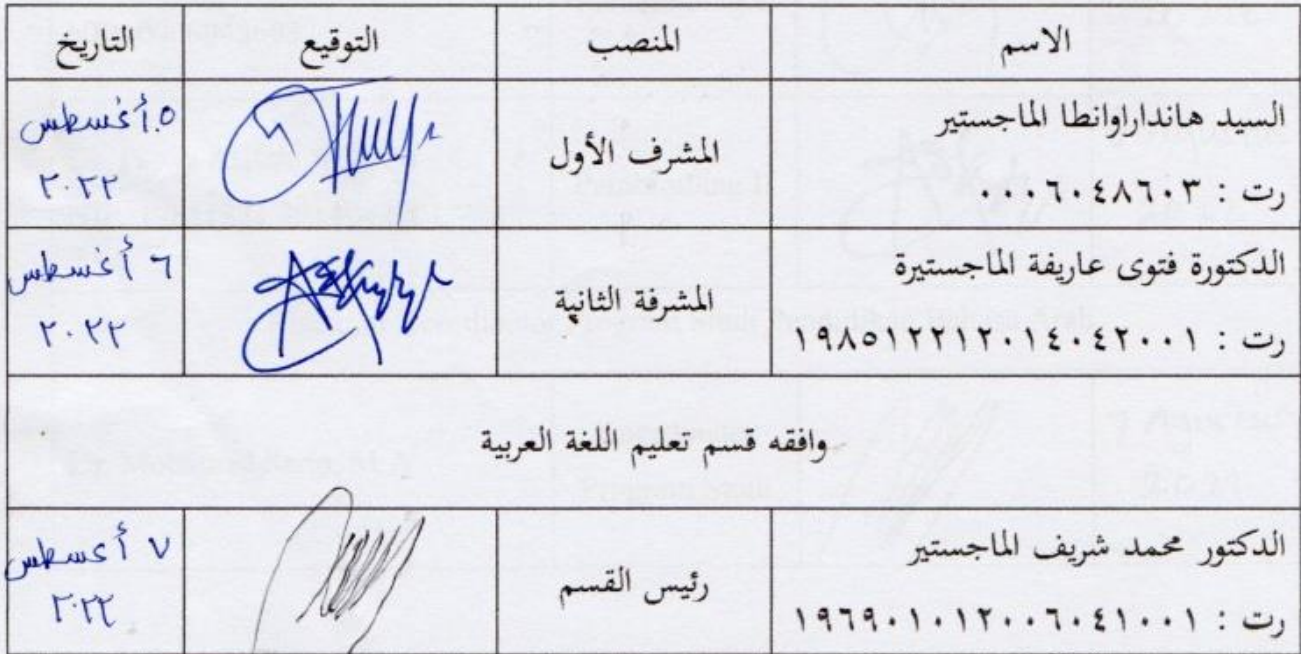 الاسم المنصب التوقيع التاريخ
السيد هانداراوانطا الماجستير
رت : ٠٠٠٦٠٤٨٦٠٣
المشرف الأول
٥ أغسطس
٢٠٢٢
الدكتورة فتوى عاريفة الماجستيرة
رت : ١٩٨٥١٢٢١٢٠١٤٠٤٢٠٠١
المشرفة الثانية
٦ أغسطس
٢٠٢٢
وافقه قسم تعليم اللغة العربية
الدكتور محمد شريف الماجستير
رت : ١٩٦٩٠١٠١٢٠٠٦٠٤١٠٠١
رئيس القسم
٧ أغسطس
٢٠٢٢